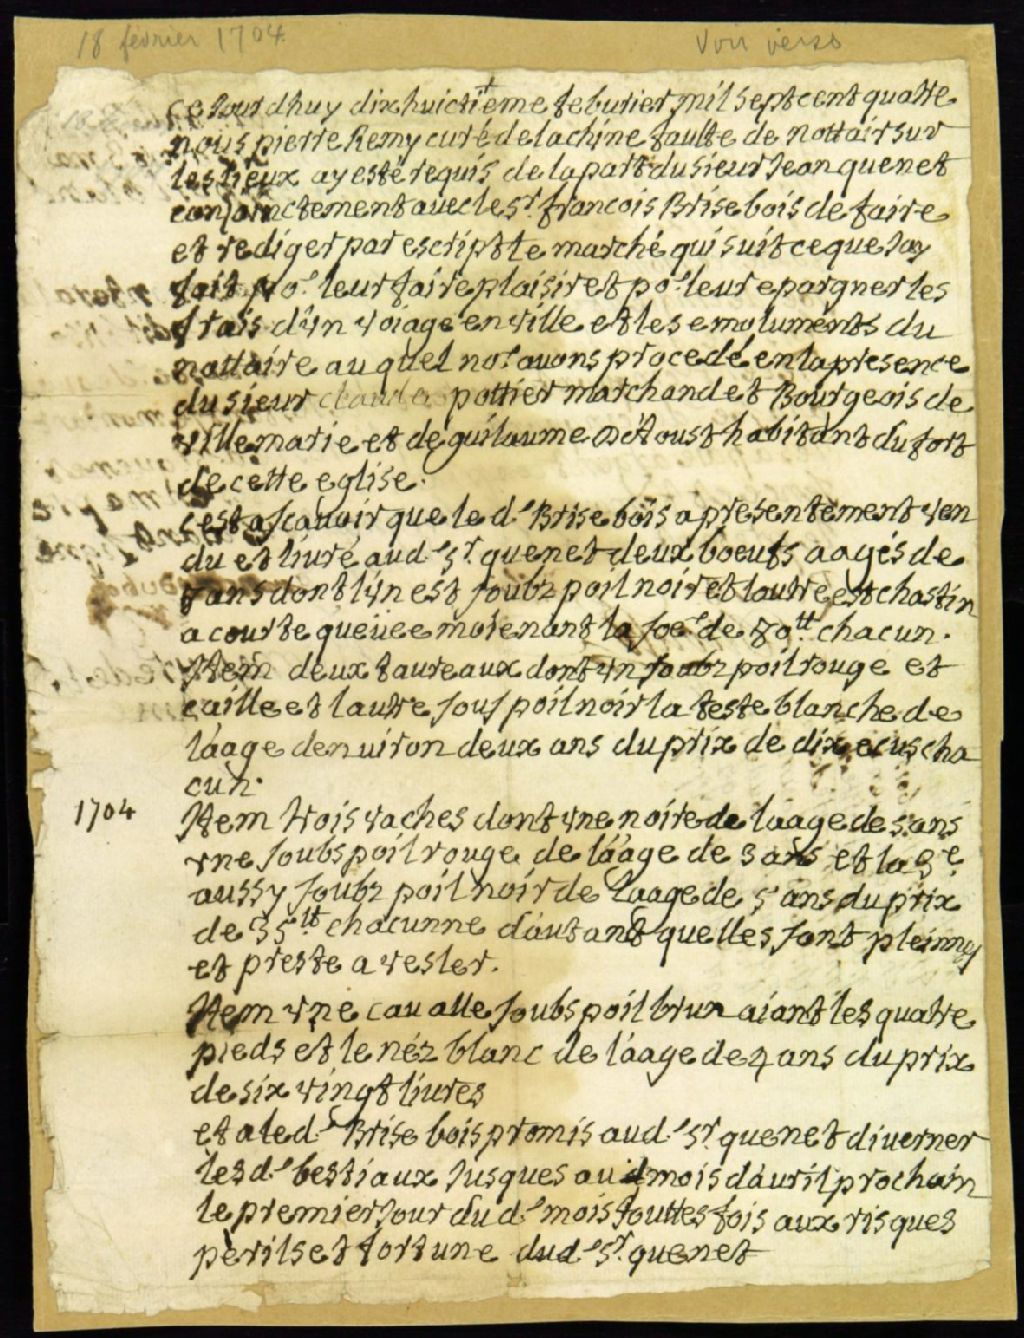 18 février 1704
Voir verso
ce Jourdhuy dixhuictieme feburier mil sept cent quatre
nous pierre Remy curé de lachine faulte de nottair sur
les lieux ay esté requis de la part du sieur Jean quenet
conjoinctement avec le sr. francois Brisebois de faire
et rediger par escript le marché qui suit ce que Jay
fait por leur faire plaisir et por leur epargner les
frais dun voiage en ville et les emoluments du
nottaire au quel nos avons procedé en la presence
du sieur claude pottier marchand et Bourgeois de
villemarie et de guilaume D'Aoust habitant du fort
de cette eglise.
c'est a scavoir que le d. Brisebois a presentement ven
du et livré aud. sr. quenet deux boeufs aagés de
7 ans dont lun est soubz poil noir et loutre est chastin
a courte queuee moienant la soe de 70tt chacun.
Item deux taureaux dont un soubz poil rouge et
caille et lautre sous poil noir la teste blanche de
láage denuiron deux ans du prix de dix ecus cha
cun.
1704
Item trois vaches dont une noire de laage de 5 ans
une soubs poil rouge de láage de 3 ans et la 3e
aussy soubz poil noir de laage de 5 ans du prix
de 35tt chacunne dáutant quelles sont pleinny
et preste a vesler.
Item une cavalle soubs poil brun aiant les quatre
pieds et le néz blanc de láage de 4 ans du prix
de six vingt livres
et a le d. Brisebois promis aud. sr. quenet diverner
les d. bestiaux Jusques au mois dáuril prochain
le premier Jour du d. mois touttes fois aux risques
perils et fortune dud. sr. quenet